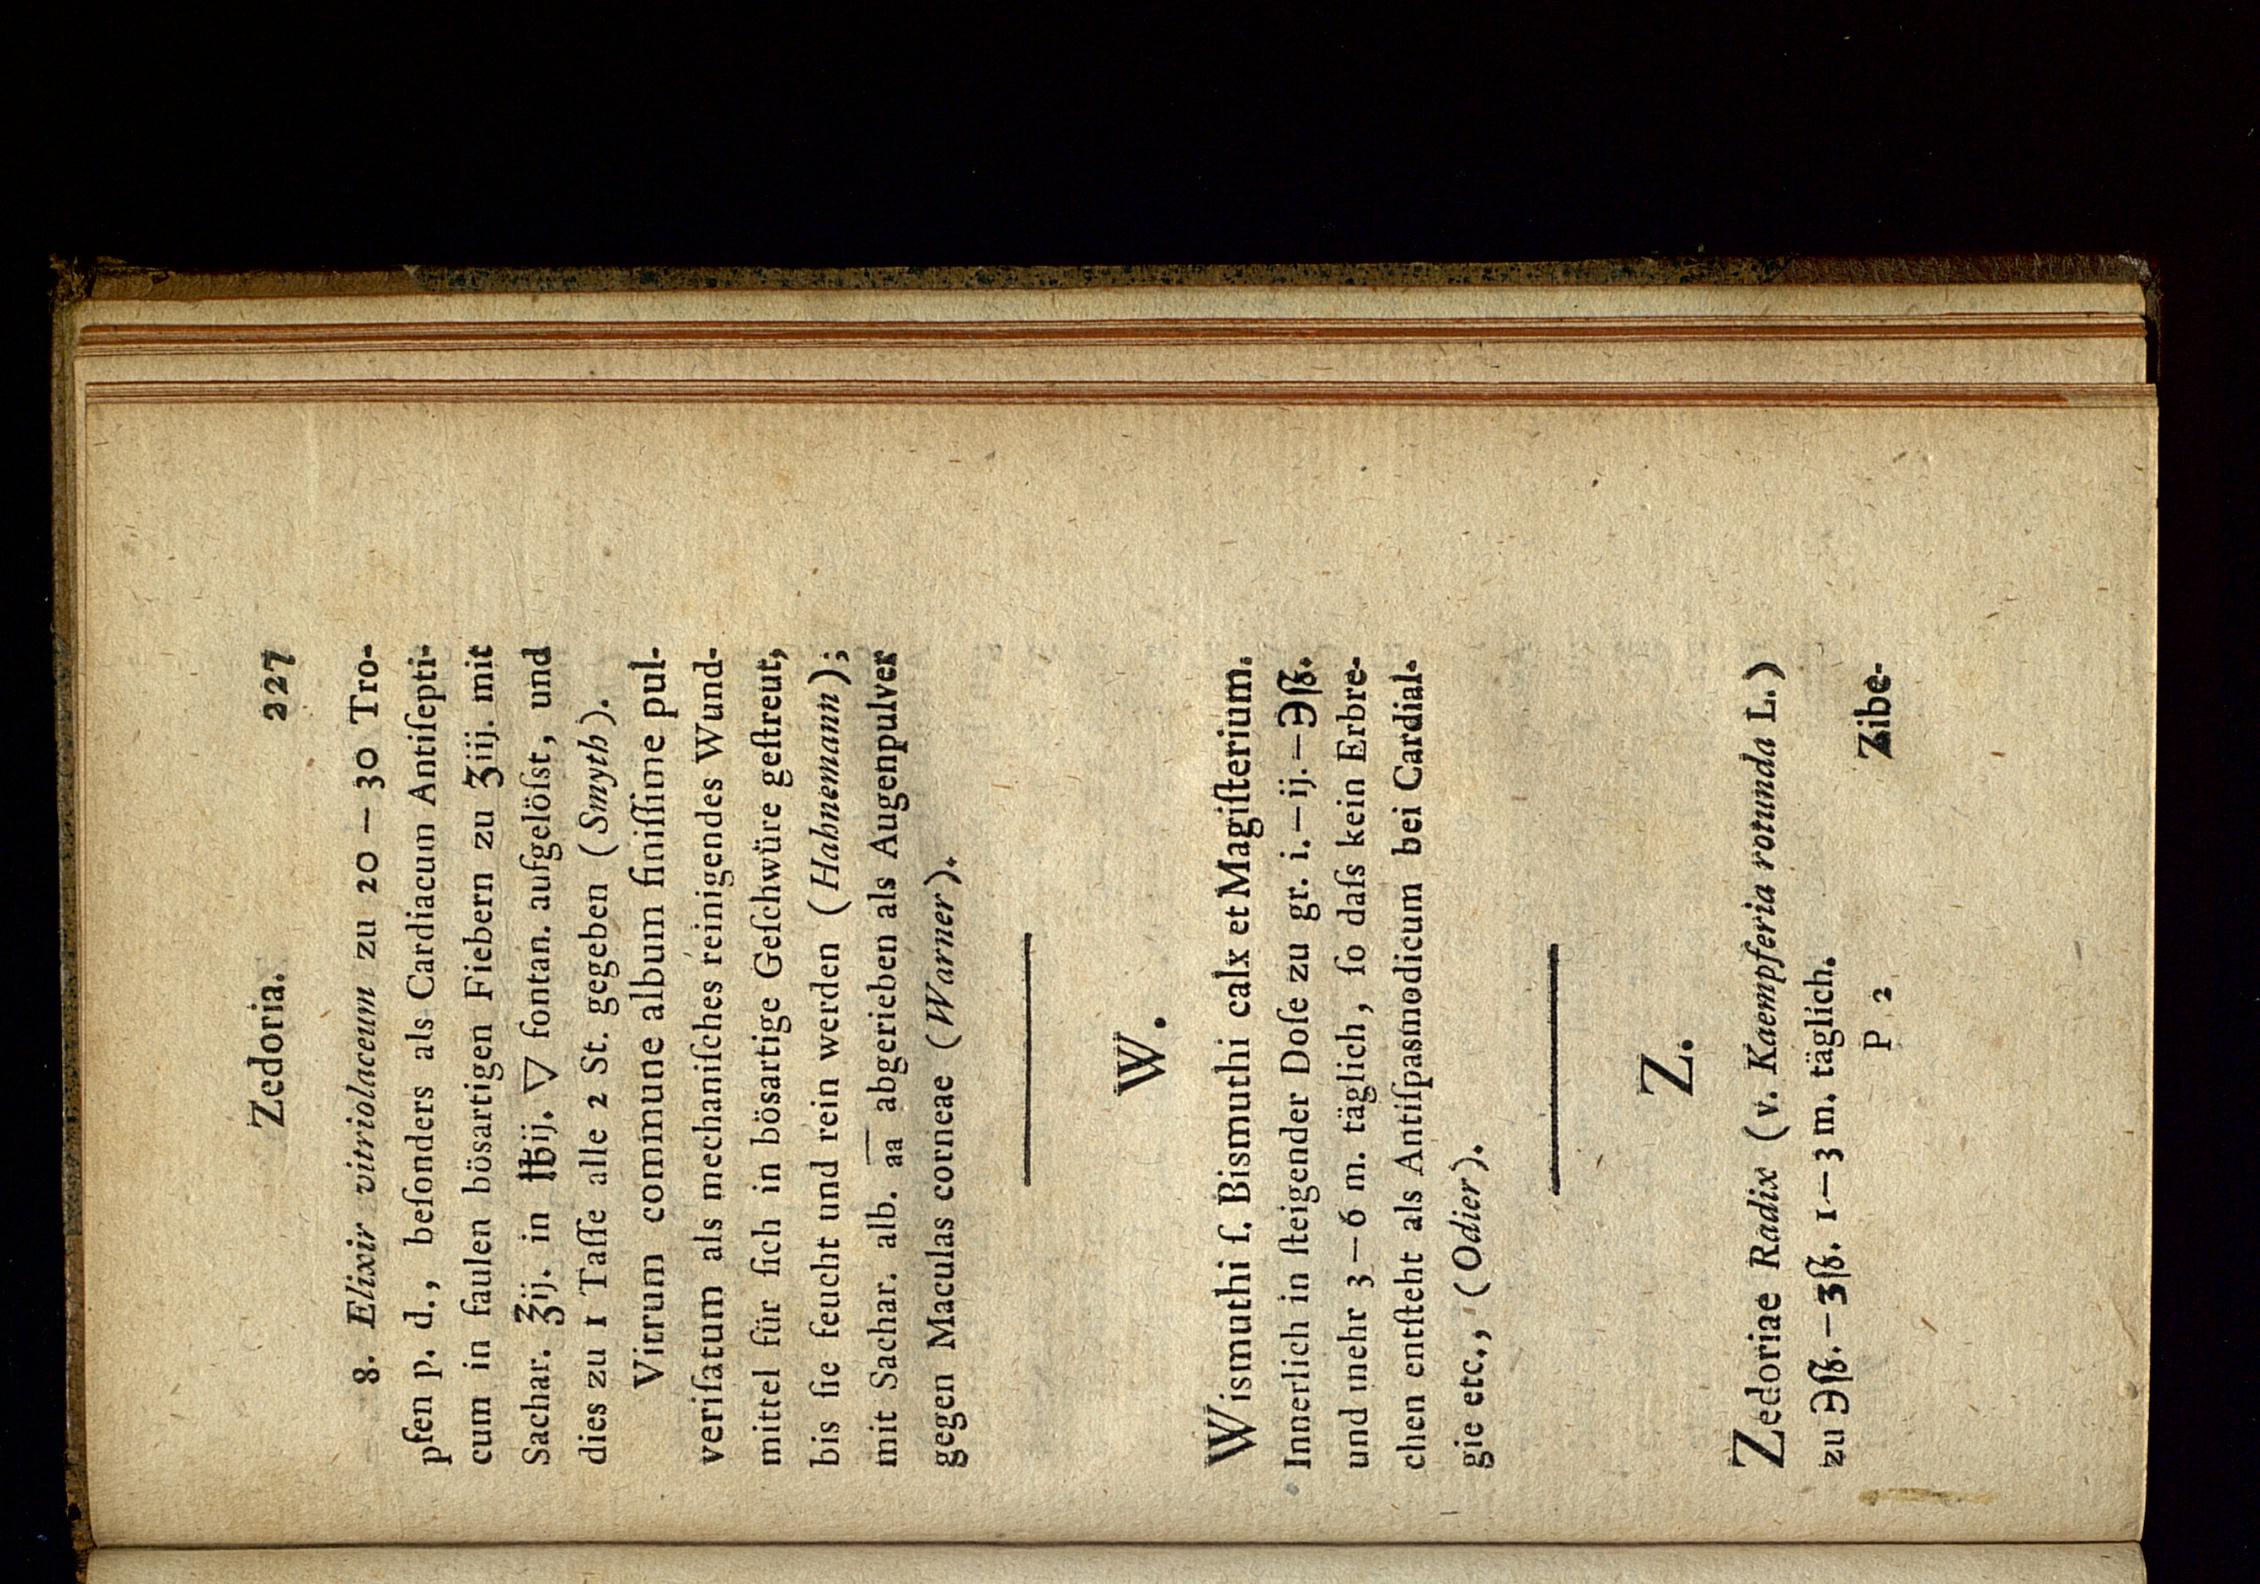 Zedoria. 227
8. Elixir vitriolaceum zu 20 — 30 Tro-
pfen p. d., beſonders als Cardiacum Antiſepti-
cum in faulen bösartigen Fiebern zu ℥iij. mit
Sachar. ℥ij. in ℔ij. ▽ fontan. aufgelöſst, und
dies zu 1 Taſſe alle 2 St. gegeben (Smyth).
Vitrum commune album finiſſime pul-
veriſatum als mechaniſches reinigendes Wund-
mittel für ſich in bösartige Geſchwüre geſtreut,
bis ſie feucht und rein werden (Hahnemann);
mit Sachar. alb. a̅a̅ abgerieben als Augenpulver
gegen Maculas corneae (Warner).
W.
Wismuthi ſ. Bismuthi calx et Magiſterium.
Innerlich in ſteigender Doſe zu gr. i. — ij. — ℈ſß.
und mehr 3 — 6 m. täglich, ſo daſs kein Erbre-
chen entſteht als Antiſpasmodicum bei Cardial-
gie etc., (Odier).
Z.
Zedoriae Radix (v. Kaempferia rotunda L.)
zu ℈ſß. — ʒſß. 1 — 3 m. täglich.
P 2 Zibe-